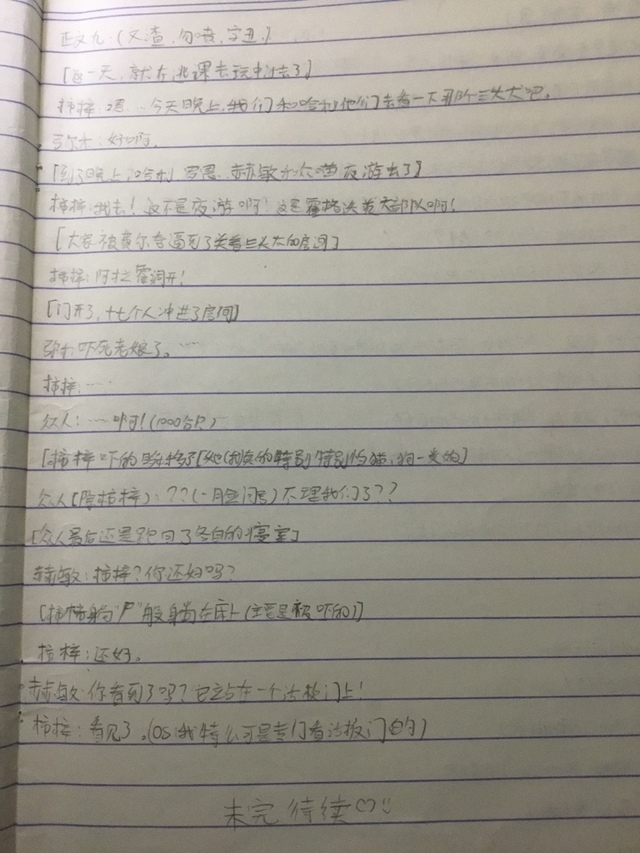 正文九:(文渣,勿喷,字丑。)
[这一天,就在北课去玩中过去了]
柿梓:嗯…今天晚上,我们和哈利他们去看一下那个三头犬吧。
弥尔:好啊。
[到了晚上,哈利 罗恩、赫敏 夜游去了]
柿梓:我去!这不是夜游啊!这是霍格沃茨大部队啊!
[大家被费尔奇逼到了关着三头犬的房间]
柿梓:阿拉霍洞开!
[门开了,十七个人冲进了房间]
弥尔:吓死老娘了。……
柿梓:……
众人:……啊!(1000分贝)
[柿梓吓的 移了[她(我)真的特别特别怕猫,狗一类的]
众人(除柿梓):??(一脸问号)不理我们了??
[众人最后还是 回了各自的寝室]
赫敏:柿梓?你还好吗?
[柿梓躺“尸”般躺在床上(主要是被吓的)]
柿梓:还好。
赫敏:你看到了吗?它站在一个活板门上!
柿梓:看见了。(OS:我特么可是专门看活板门的)
未完待续♡